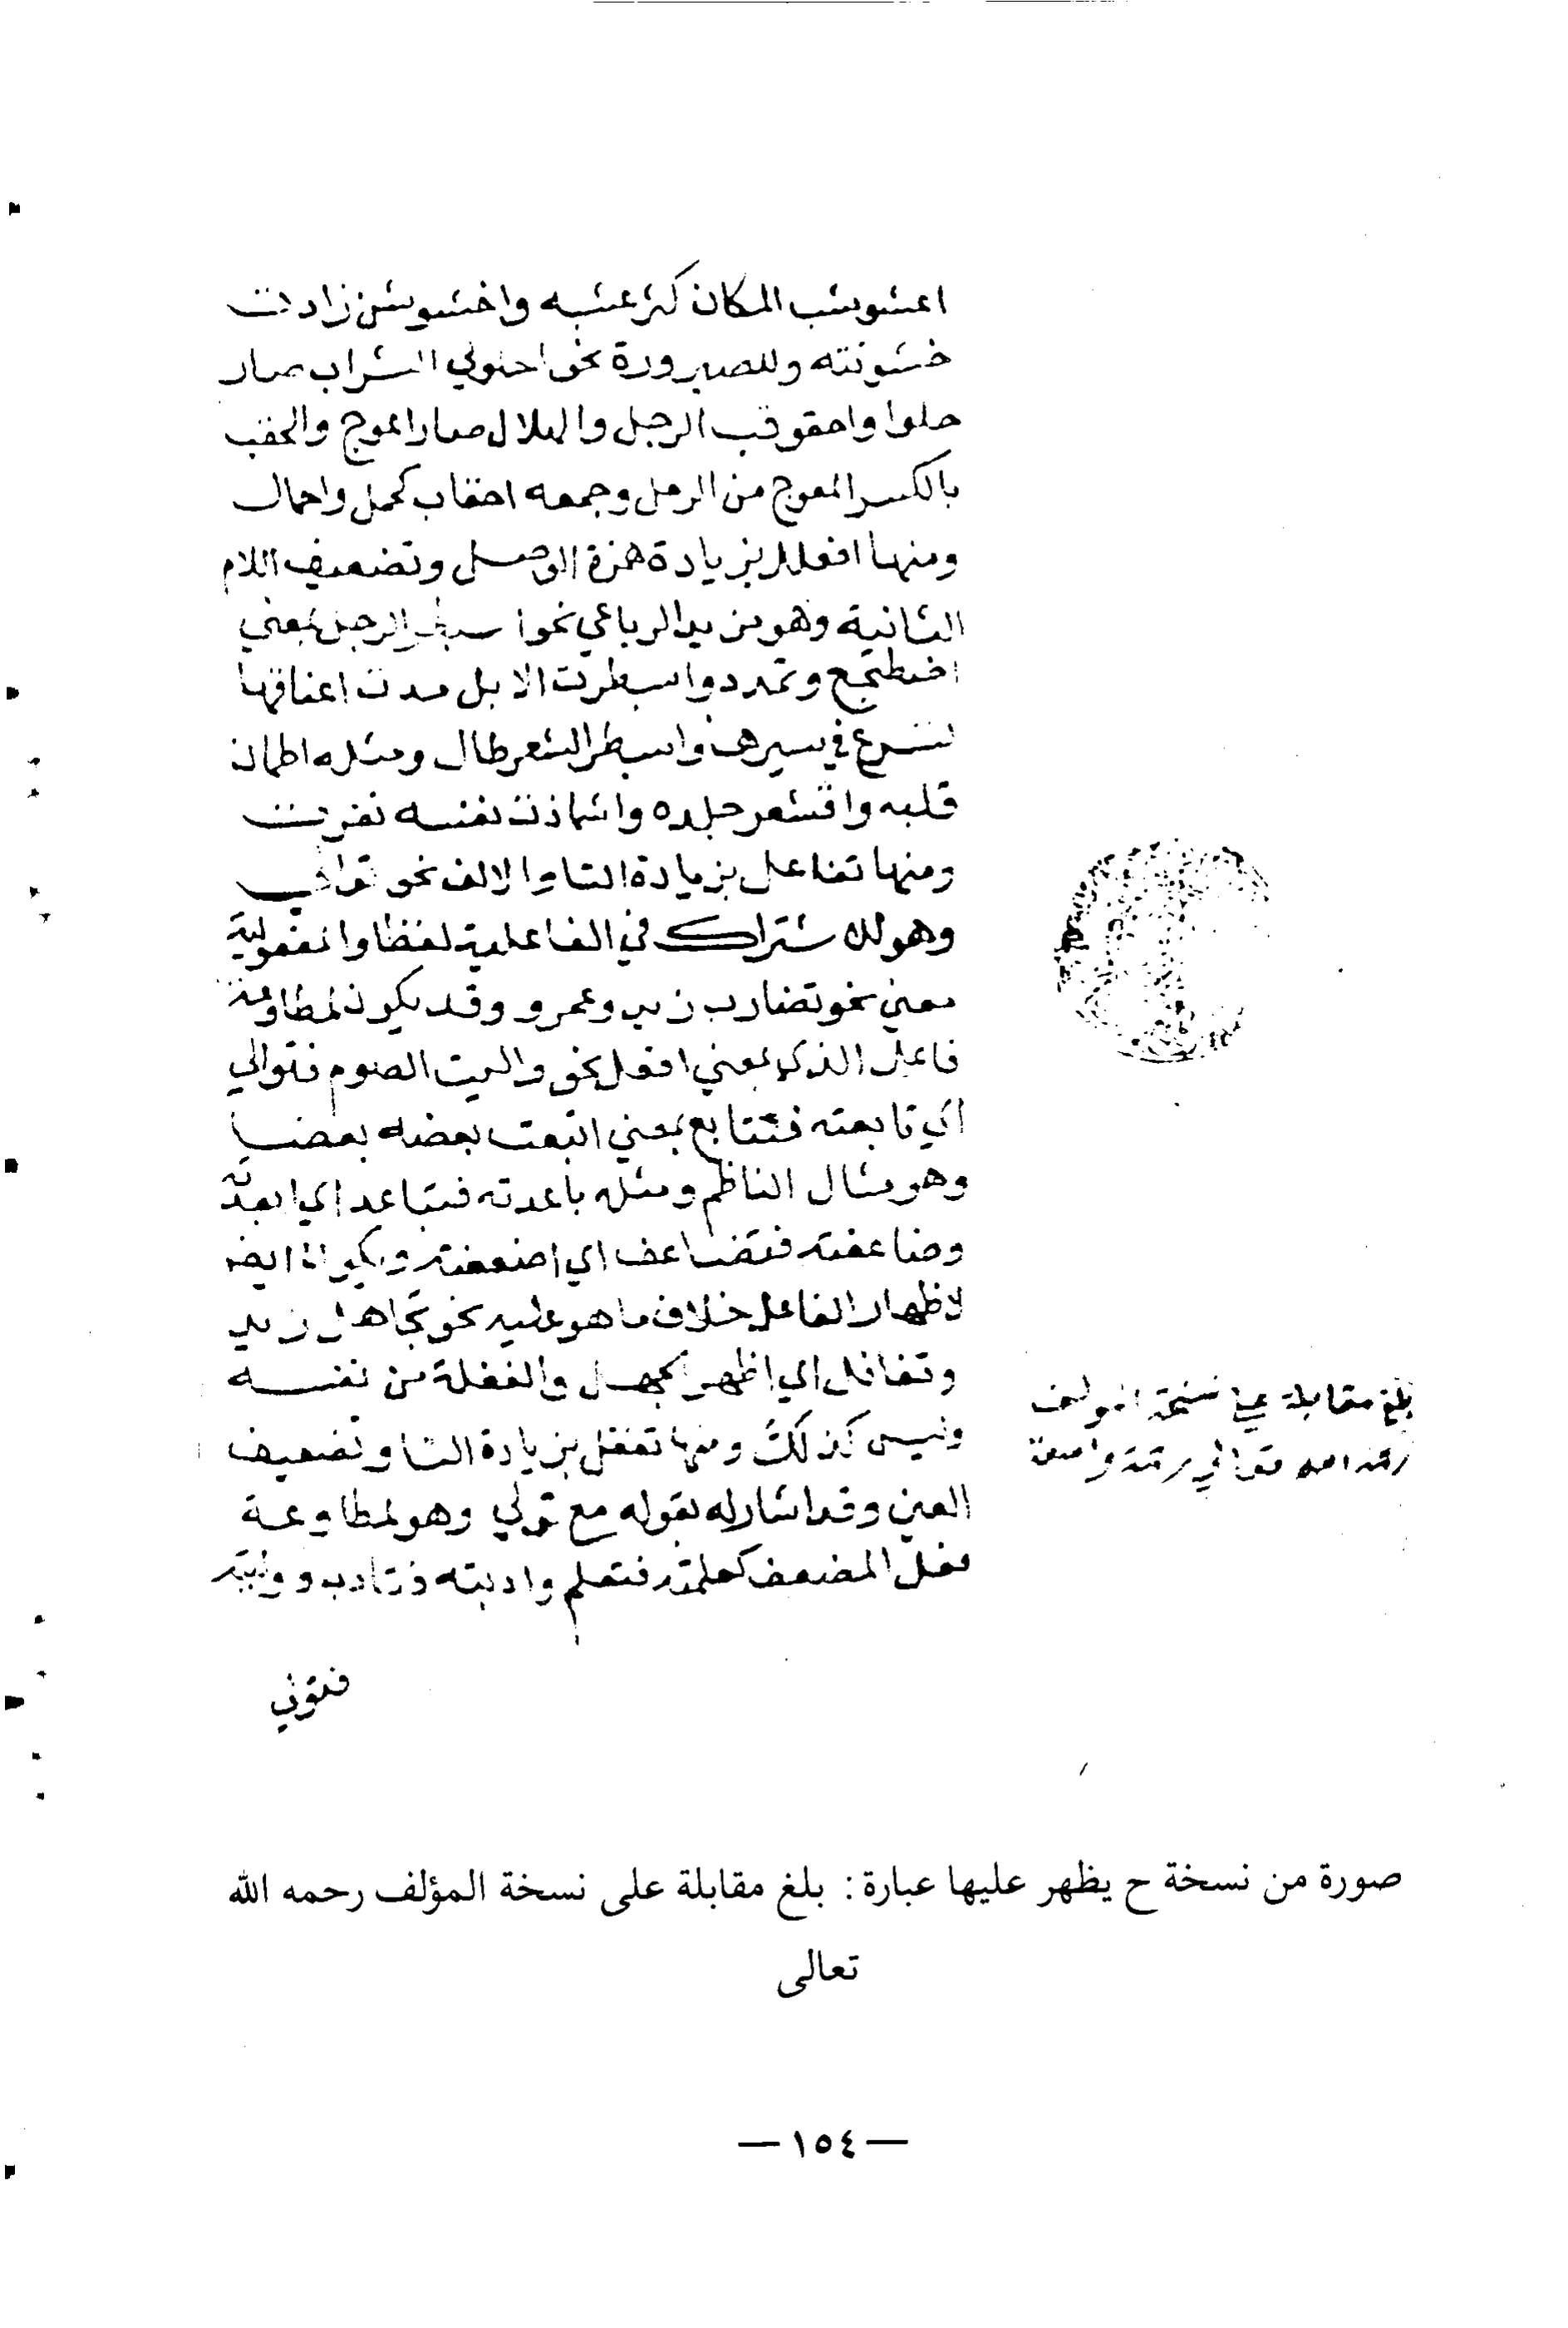 اعشوشب المكان كثر عشبه واخشوشن زادت
خشونته وللصيرورة نحو احلولي الشراب صار
حلوا واحقوقب الرجل والهلال صار اعوج والحقب
بالكسر المعوج من الرمل وجمعه احقاب كحمل واحمال
ومنها افعلل بزيادة همزة الوصل وتضعيف اللام
الثانية وهو مزيد الرباعي نحو اسبطر الرجل بمعني
اضطجع وتمدد واسبطرت الابل مدت اعناقها
لتسرع في سيرها واسبطر الشعر طال ومثله اطمان
قلبه واقشعر جلده واشمازت نفسه نفرت
ومنها تفاعل بزيادة التا والالف نحو توالي
وهو للاشتراك في الفاعلية لفظا والمفعولية
معني نحو تضارب زيد وعمرو وقد يكون لمطاوعة
فاعل الذي بمعني افعل نحو واليت الصوم فتوالي
اي تابعته فتتابع بمعني اتبعت بعضه بعضا
وهو مثال الناظم ومثله باعدته فتباعد اي ابعدته
وضاعفته فتضاعف اي اضعفته ويكون ايضا
لاظهار الفاعل خلاف ما هو عليه نحو تجاهل زيد
وتغافل اي اظهر الجهل والغفلة من نفسه
وليس كذلك ومنها تفعل بزيادة التا وتضعيف
العين وقد اشار له بقوله مع تولي وهو لمطاوعة
فعل المضعف كعلمته فتعلم وادبته فتادب ووليته
فتولي
بلغ مقابلة علي نسخة المولف
رحمه الله تعالي رحمة واسعة
صورة من نسخة ح يظهر عليها عبارة : بلغ مقابلة على نسخة المؤلف رحمه الله
تعالى
— ١٥٤ —